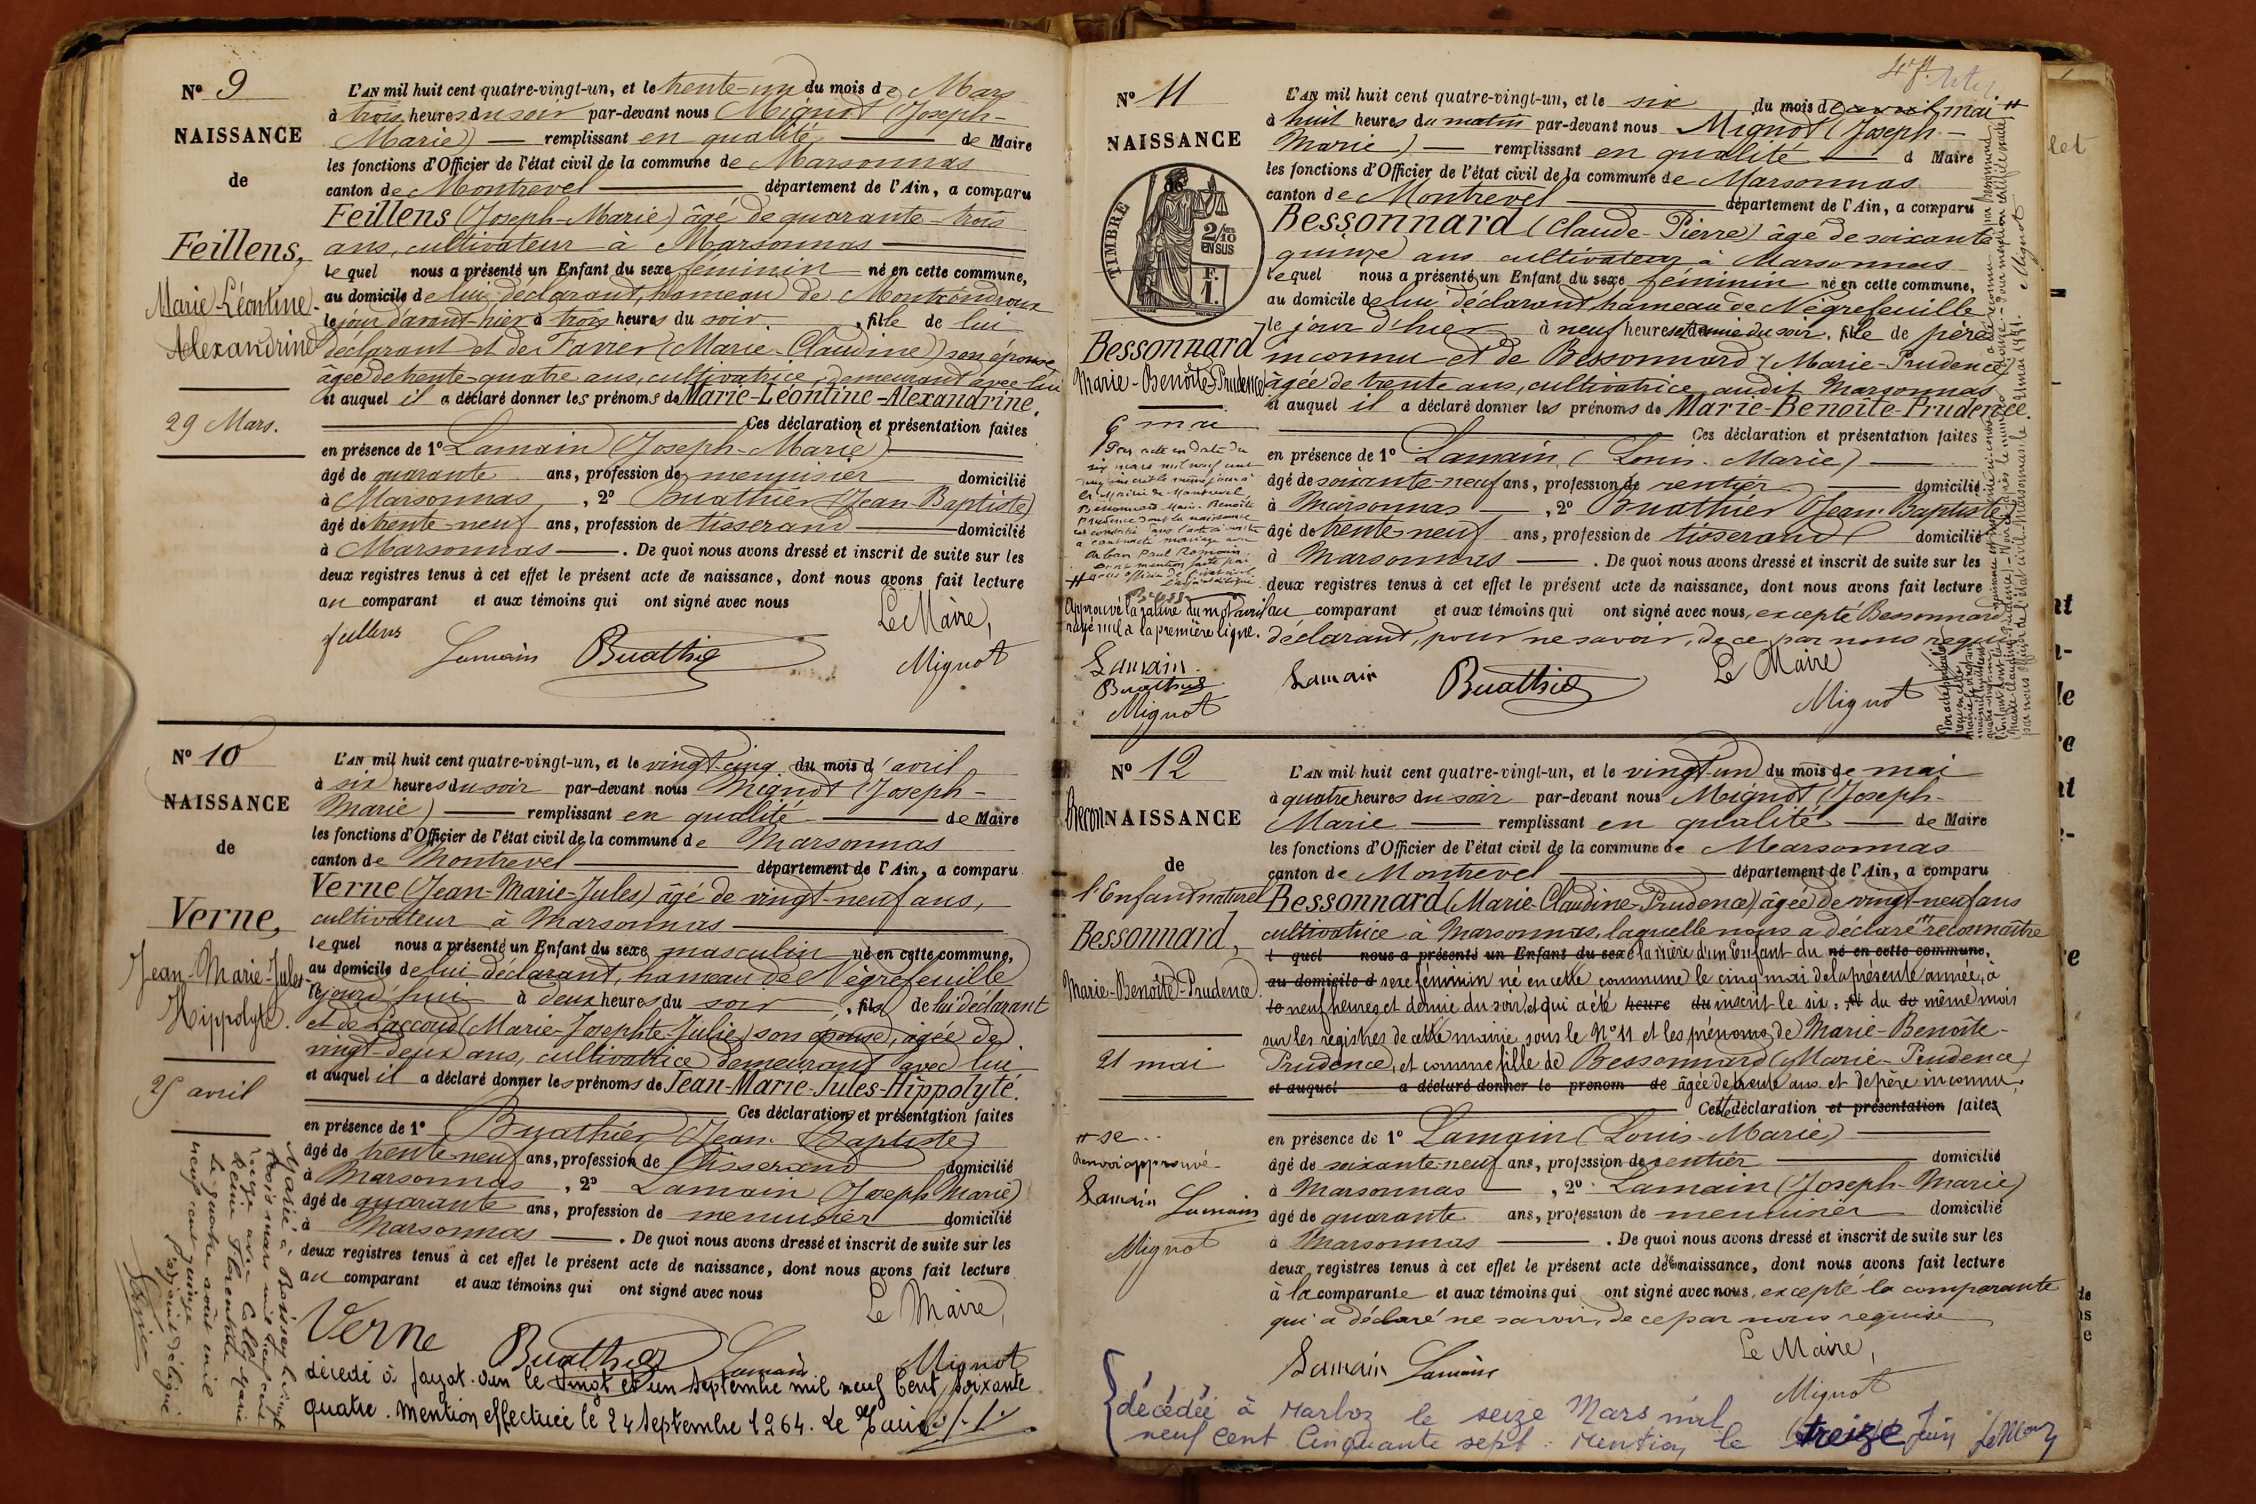 Nº 9
NAISSANCE
de
Feillens,
Marie-Léontine-
Alexandrine
29 Mars.
L'AN mil huit cent quatre-vingt-un, et le trente-un du mois de Mars
à trois heures du soir par-devant nous Mignot (Joseph-
Marie) remplissant en qualité de Maire
les fonctions d'Officier de l'état civil de la commune de Marsonnas
canton de Montrevel département de l'Ain, a comparu
Feillens (Joseph-Marie) âgé de quarante-trois
ans, cultivateur à Marsonnas
le quel nous a présenté un Enfant du sexe féminin né en cette commune,
au domicile de lui déclarant, hameau de
le jour d'avant-hier à trois heures du soir, fille de lui
déclarant et de (Marie-Claudine) son épouse,
âgée de trente-quatre ans, cultivatrice, demeurant avec lui
et auquel il a déclaré donner les prénoms de Marie-Léontine-Alexandrine.
Ces déclaration et présentation faites
en présence de 1º Lamain (Joseph-Marie)
âgé de quarante ans, profession de menuisier domicilié
à Marsonnas, 2º Buathier (Jean-Baptiste)
âgé de trente-neuf ans, profession de tisserand domicilié
à Marsonnas. De quoi nous avons dressé et inscrit de suite sur les
deux registres tenus à cet effet le présent acte de naissance, dont nous avons fait lecture
au comparant et aux témoins qui ont signé avec nous
Le Maire,
feillens Lamain Buathier Mignot
Nº 10
NAISSANCE
de
Verne,
Jean-Marie-Jules-
Hippolyte.
25 avril
L'AN mil huit cent quatre-vingt-un, et le vingt-cinq du mois d'avril
à six heures du soir par-devant nous Mignot (Joseph-
Marie) remplissant en qualité de Maire
les fonctions d'Officier de l'état civil de la commune de Marsonnas
canton de Montrevel département de l'Ain, a comparu
Verne (Jean-Marie-Jules) âgé de vingt-neuf ans,
cultivateur à Marsonnas
le quel nous a présenté un Enfant du sexe masculin né en cette commune,
au domicile de lui déclarant, hameau de Négrefeuille
ce jourd'hui à deux heures du soir, fils de lui déclarant
et de (Marie-Josephte-Julie) son épouse, âgée de
vingt-deux ans, cultivatrice demeurant avec lui
et auquel il a déclaré donner les prénoms de Jean-Marie-Jules-Hippolyte.
Ces déclaration et présentation faites
en présence de 1º Buathier (Jean-Baptiste)
âgé de trente-neuf ans, profession de tisserand domicilié
à Marsonnas, 2º Lamain (Joseph Marie)
âgé de quarante ans, profession de menuisier domicilié
à Marsonnas. De quoi nous avons dressé et inscrit de suite sur les
deux registres tenus à cet effet le présent acte de naissance, dont nous avons fait lecture
au comparant et aux témoins qui ont signé avec nous
Le Maire,
Verne Buathier Lamain Mignot
décédé à le vingt et un Septembre mil neuf Cent soixante
quatre. Mention effectuée le 24 Septembre 1964. Le
Marié à Boissey le vingt
trois mars mil neuf cent
Reine Florentine
Le quatre août mil
neuf cent quinze
L'adjoint délégué
Nº 11
NAISSANCE
TIMBRE
2/10
EN SUS
Bessonnard
Marie-Benoîte-Prudence
5 mai
Par acte en date du
six mars mil neuf cent
la Mairie de Montrevel
Bessonnard Marie-Benoîte
Prudence dont la naissance
a contracté mariage avec
Paul Romain.
Approuvé la rature du mot avril
rayé nul à la première ligne.
Lamain
Buathier
Mignot
L'AN mil huit cent quatre-vingt-un, et le six du mois de avril mai
à huit heures du matin par-devant nous Mignot (Joseph-
Marie) remplissant en qualité d Maire
les fonctions d'Officier de l'état civil de la commune de Marsonnas
canton de Montrevel département de l'Ain, a comparu
Bessonnard (Claude-Pierre) âgé de soixante
quinze ans cultivateur à Marsonnas
le quel nous a présenté un Enfant du sexe féminin né en cette commune,
au domicile de lui déclarant hameau de Négrefeuille
le jour d'hier à neuf heures et demie du soir, fille de père
inconnu et de Bessonnard (Marie-Prudence)
âgée de trente ans, cultivatrice audit Marsonnas
et auquel il a déclaré donner les prénoms de Marie-Benoîte-Prudence.
Ces déclaration et présentation faites
en présence de 1º Lamain (Louis-Marie)
âgé de soixante-neuf ans, profession de rentier domicilié
à Marsonnas, 2º Buathier (Jean-Baptiste)
âgé de trente neuf ans, profession de tisserand domicilié
à Marsonnas. De quoi nous avons dressé et inscrit de suite sur les
deux registres tenus à cet effet le présent acte de naissance, dont nous avons fait lecture
au comparant et aux témoins qui ont signé avec nous, excepté Bessonnard
déclarant, pour ne savoir, de ce par nous requis
Le Maire
Lamain Buathier Mignot
Nº 12
Recon NAISSANCE
de
l'Enfant naturel
Bessonnard,
Marie-Benoîte-Prudence.
21 mai
se
Renvoi approuvé
Lamain Lamain
Mignot
L'AN mil huit cent quatre-vingt-un, et le vingt-un du mois de mai
à quatre heures du soir par-devant nous Mignot (Joseph-
Marie remplissant en qualité de Maire
les fonctions d'Officier de l'état civil de la commune de Marsonnas
canton de Montrevel département de l'Ain, a comparu
Bessonnard (Marie-Claudine-Prudence) âgée de vingt-neuf ans
cultivatrice à Marsonnas, laquelle nous a déclaré reconnaître
l quel nous a présenté un Enfant du sexe la mère d'un Enfant du né en cette commune,
au domicile d sexe féminin né en cette commune le cinq mai de la présente année, à
le neuf heures et demie du soir, et qui a été heure du inscrit le six, fil du de même mois
sur les registres de cette mairie sous le Nº 11 et les prénoms de Marie-Benoîte-
Prudence, et comme fille de Bessonnard (Marie-Prudence)
et auquel a déclaré donner le prénom de âgée de trente ans et de père inconnu.
Cette déclaration et présentation faites
en présence de 1º Lamain (Louis-Marie)
âgé de soixante-neuf ans, profession de rentier domicilié
à Marsonnas, 2º Lamain (Joseph-Marie)
âgé de quarante ans, profession de menuisier domicilié
à Marsonnas. De quoi nous avons dressé et inscrit de suite sur les
deux registres tenus à cet effet le présent acte de naissance, dont nous avons fait lecture
à la comparante et aux témoins qui ont signé avec nous, excepté la comparante
qui a déclaré ne savoir, de ce par nous requise
Le Maire,
Lamain Lamain Mignot
décédée à Marboz le seize Mars mil
neuf cent Cinquante sept. Mention le treize Juin